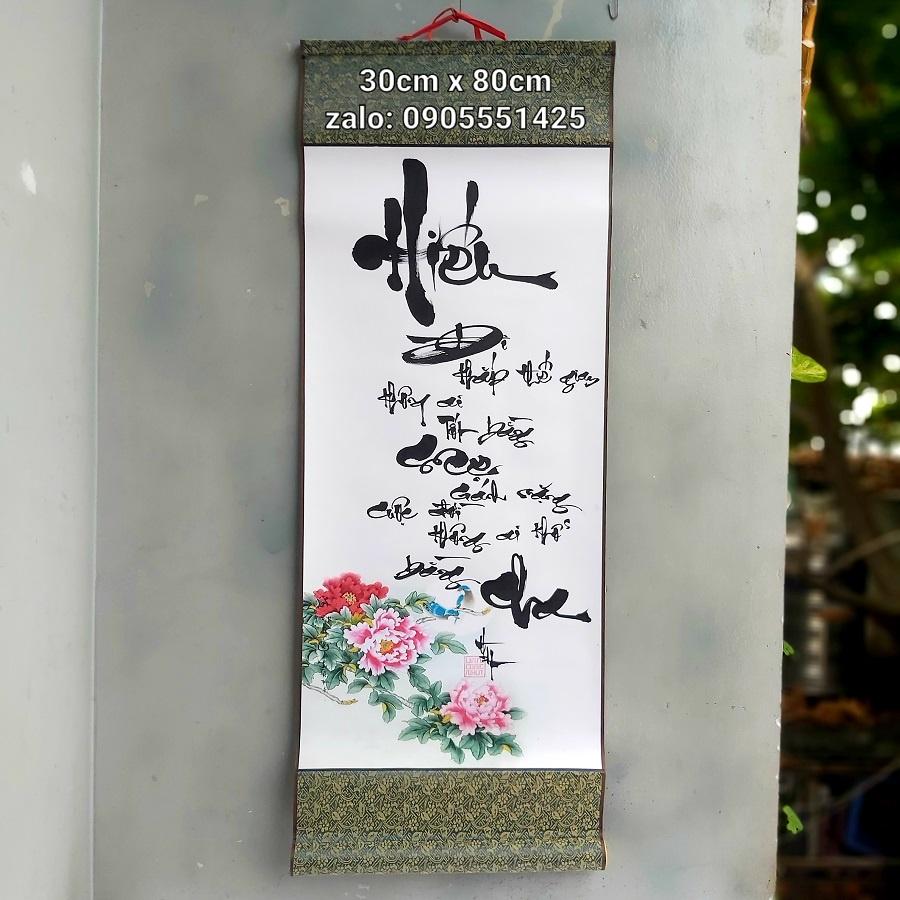 30cm x 80cm
zalo: 0905551425
Hiếu
Đi
khắp thế gian
không ai
Tốt bằng
Mẹ
Gánh nặng
cuộc đời
không ai khổ
bằng Cha